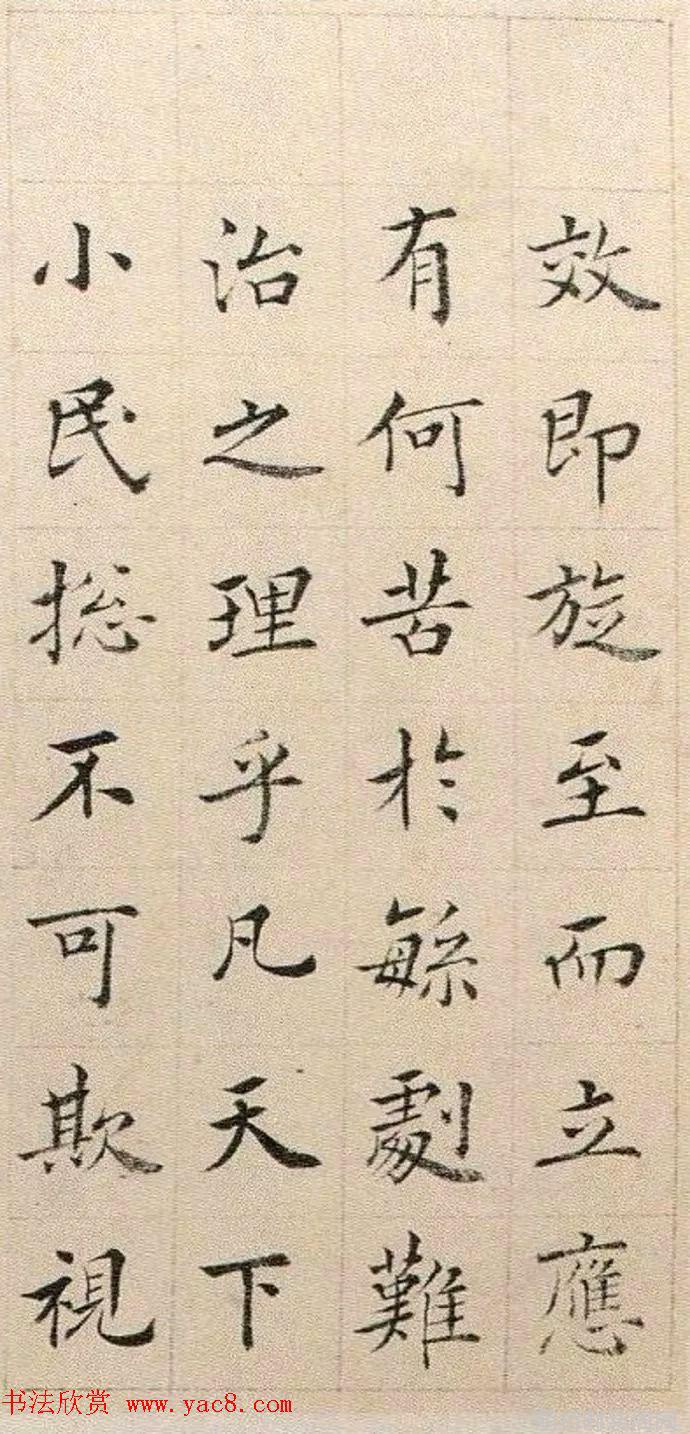 效即旋至而立應
有何苦於緐劇難
治之理乎凡天下
小民捴不可欺視
书法欣赏 www.yac8.com